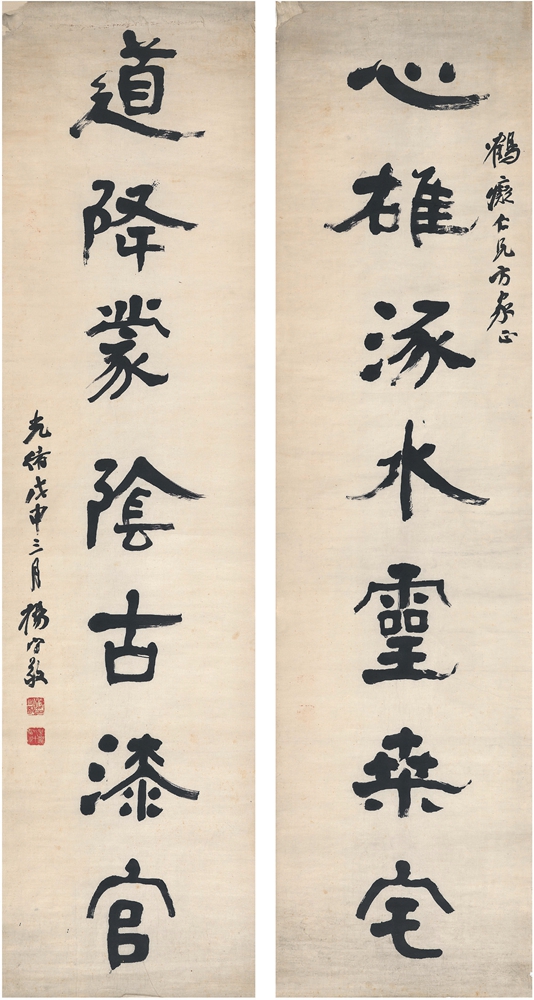 鶴癡仁兄方家正
心雄涿水靈桒宅
道降蒙陰古漆官
光緒戊申三月楊守敬